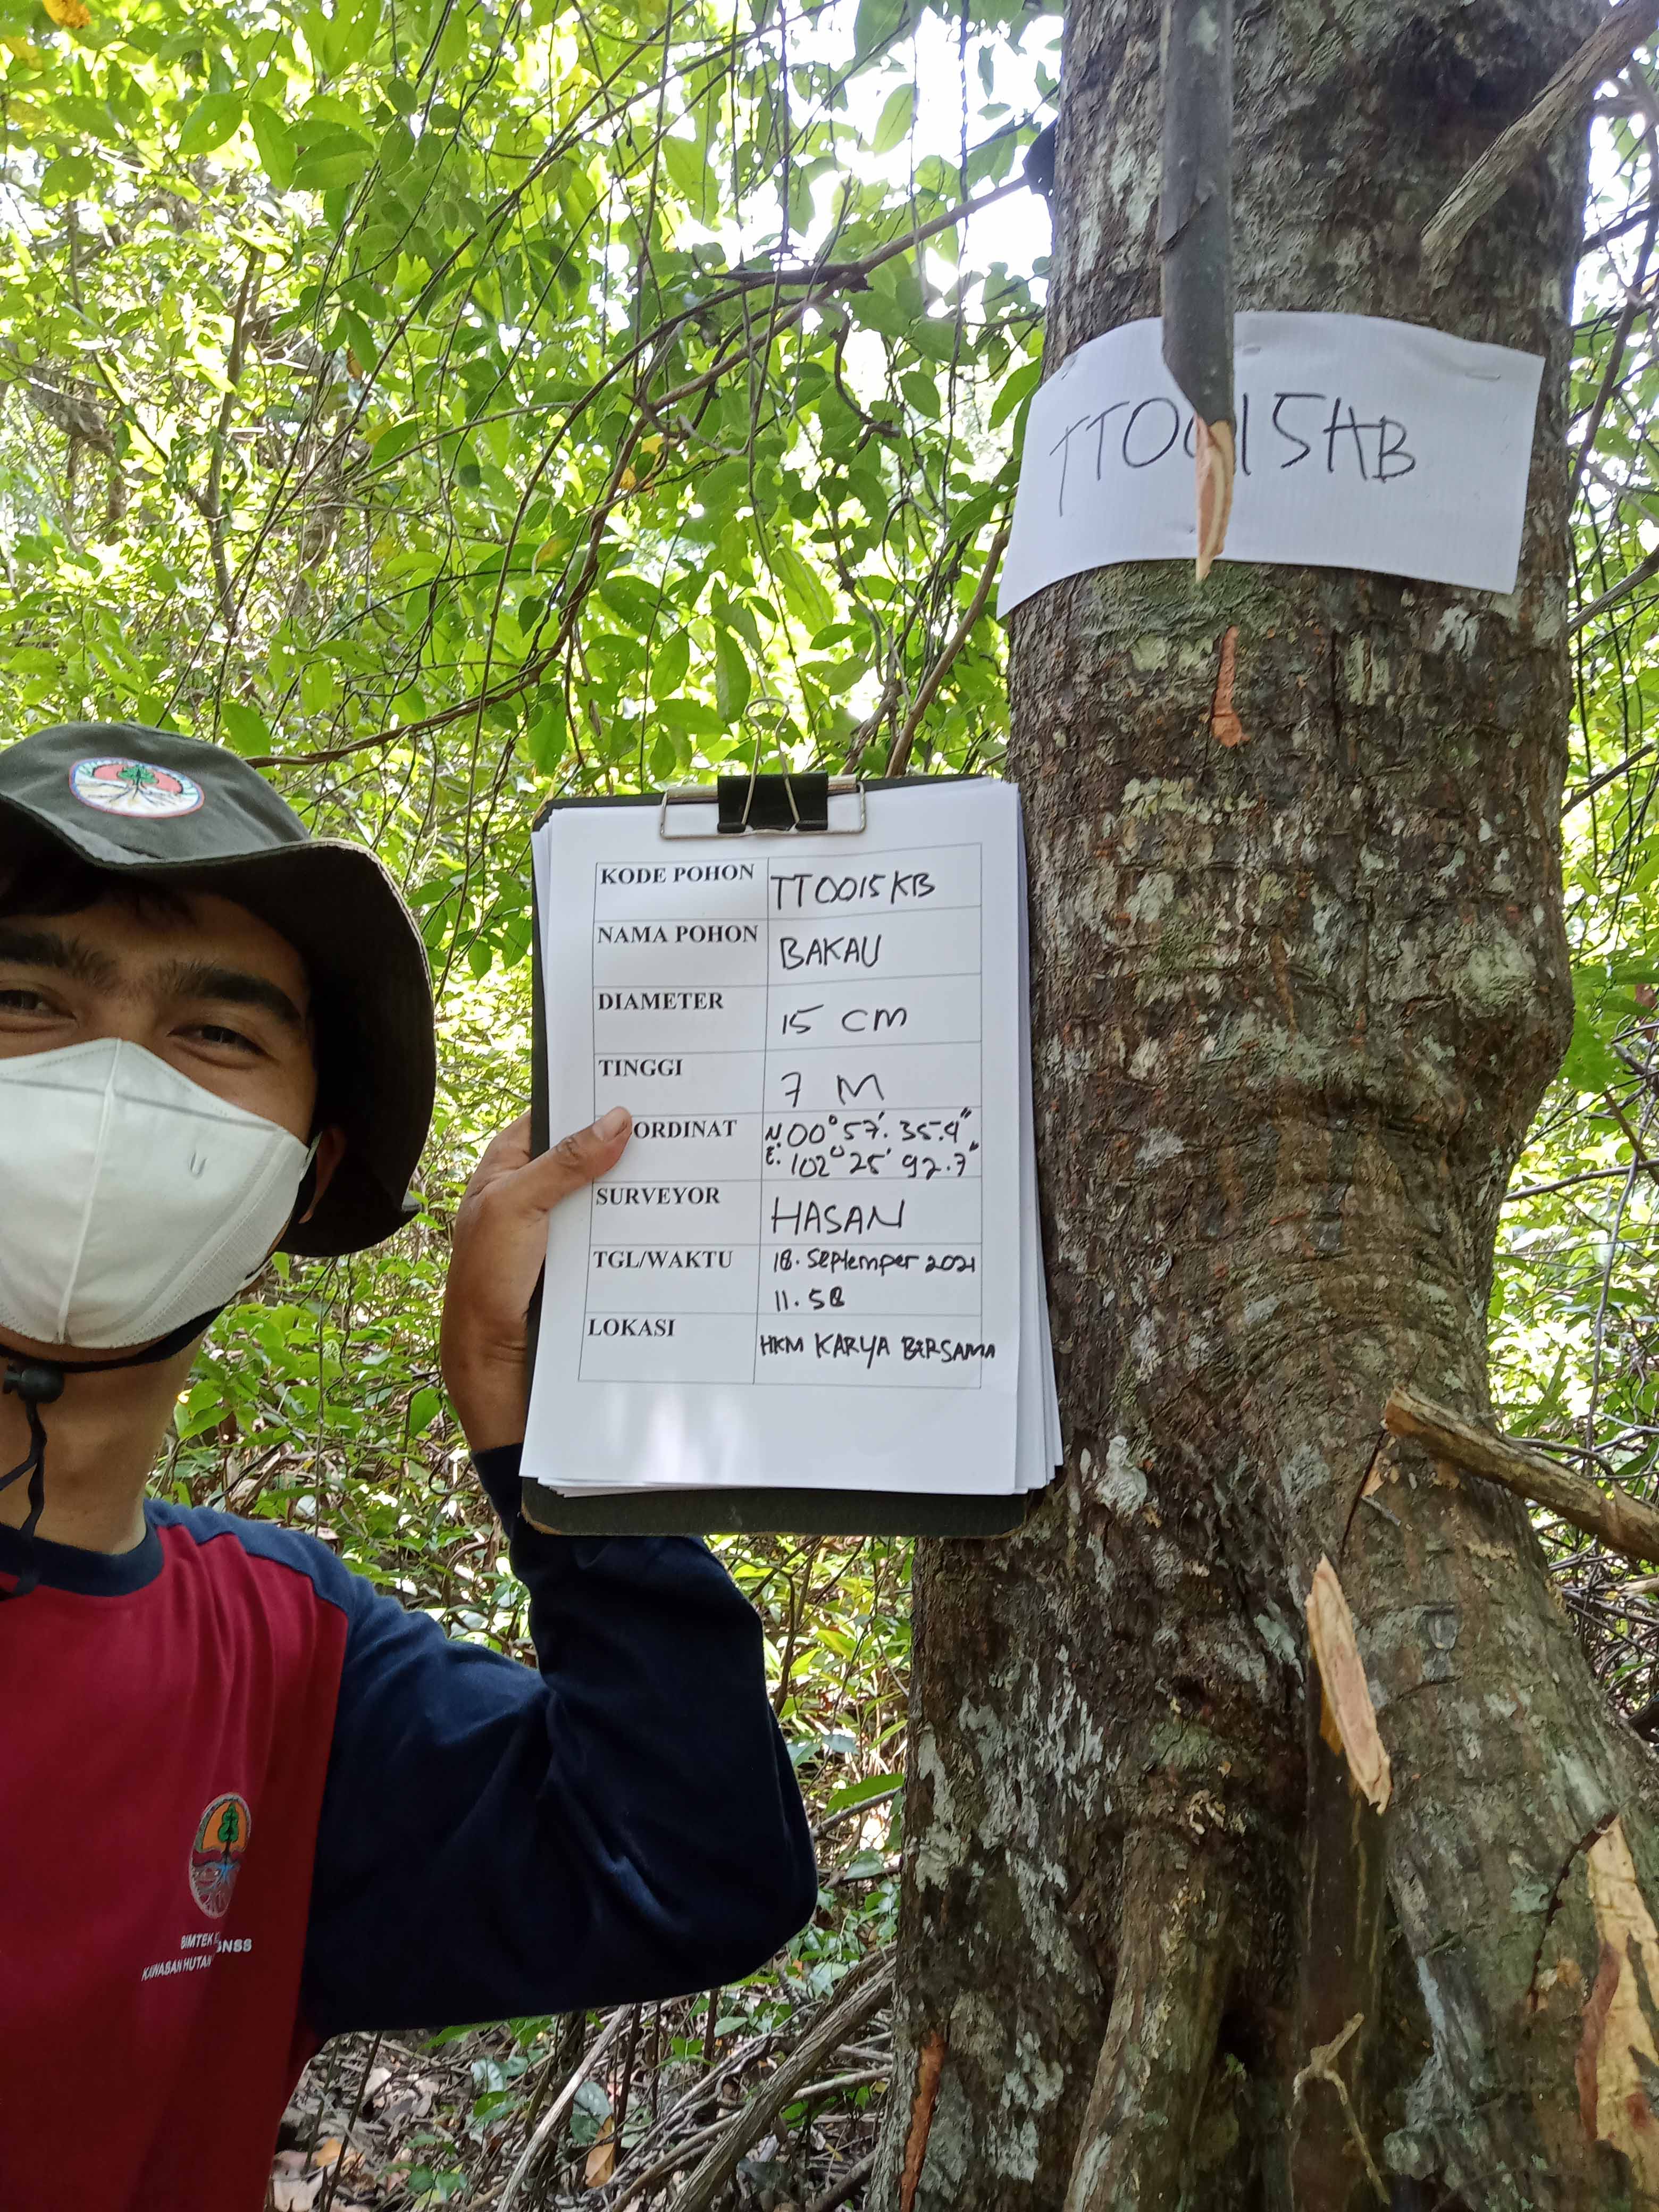 TT0015HB
KODE POHON TT0015KB
NAMA POHON BAKAU
DIAMETER 15 CM
TINGGI 7 M
ORDINAT N. 00° 57'. 35.4"
E. 102° 25' 92.7"
SURVEYOR HASAN
TGL/WAKTU 18. September 2021
11.58
LOKASI HKM KARYA BERSAMA
BIMTEK GNSS
KAWASAN HUTAN